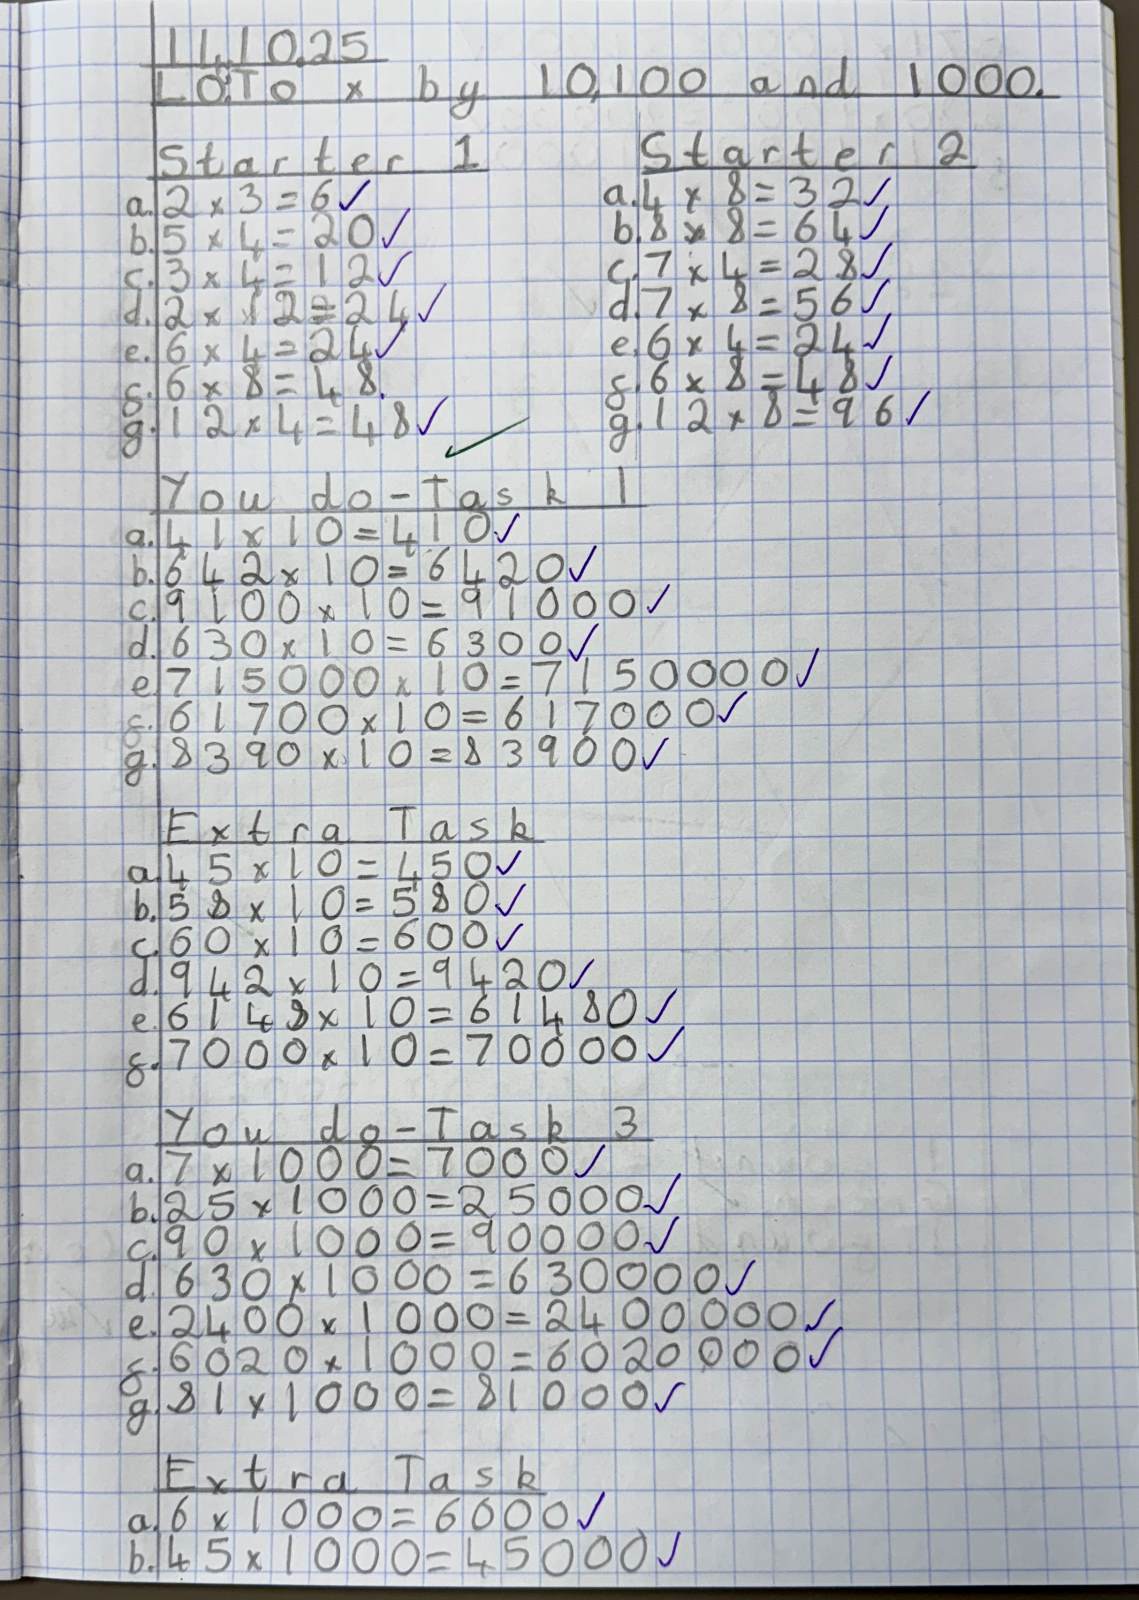 11.10.25
LO:To x by 10,100 and 1000.
Starter 1
a. 2 x 3 = 6 ✓
b. 5 x 4 = 20 ✓
c. 3 x 4 = 12 ✓
d. 2 x 12 = 24 ✓
e. 6 x 4 = 24 ✓
f. 6 x 8 = 48.
g. 12 x 4 = 48 ✓
Starter 2
a. 4 x 8 = 32 ✓
b. 8 x 8 = 64 ✓
c. 7 x 4 = 28 ✓
d. 7 x 8 = 56 ✓
e. 6 x 4 = 24 ✓
f. 6 x 8 = 48 ✓
g. 12 x 8 = 96 ✓
You do - Task 1
a. 41 x 10 = 410 ✓
b. 642 x 10 = 6420 ✓
c. 9100 x 10 = 91000 ✓
d. 630 x 10 = 6300 ✓
e. 715000 x 10 = 7150000 ✓
f. 61700 x 10 = 617000 ✓
g. 8390 x 10 = 83900 ✓
Extra Task
a. 45 x 10 = 450 ✓
b. 58 x 10 = 580 ✓
c. 60 x 10 = 600 ✓
d. 942 x 10 = 9420 ✓
e. 6148 x 10 = 61480 ✓
f. 7000 x 10 = 70000 ✓
You do - Task 3
a. 7 x 1000 = 7000 ✓
b. 25 x 1000 = 25000 ✓
c. 90 x 1000 = 90000 ✓
d. 630 x 1000 = 630000 ✓
e. 2400 x 1000 = 2400000 ✓
f. 6020 x 1000 = 6020000 ✓
g. 81 x 1000 = 81000 ✓
Extra Task
a. 6 x 1000 = 6000 ✓
b. 45 x 1000 = 45000 ✓